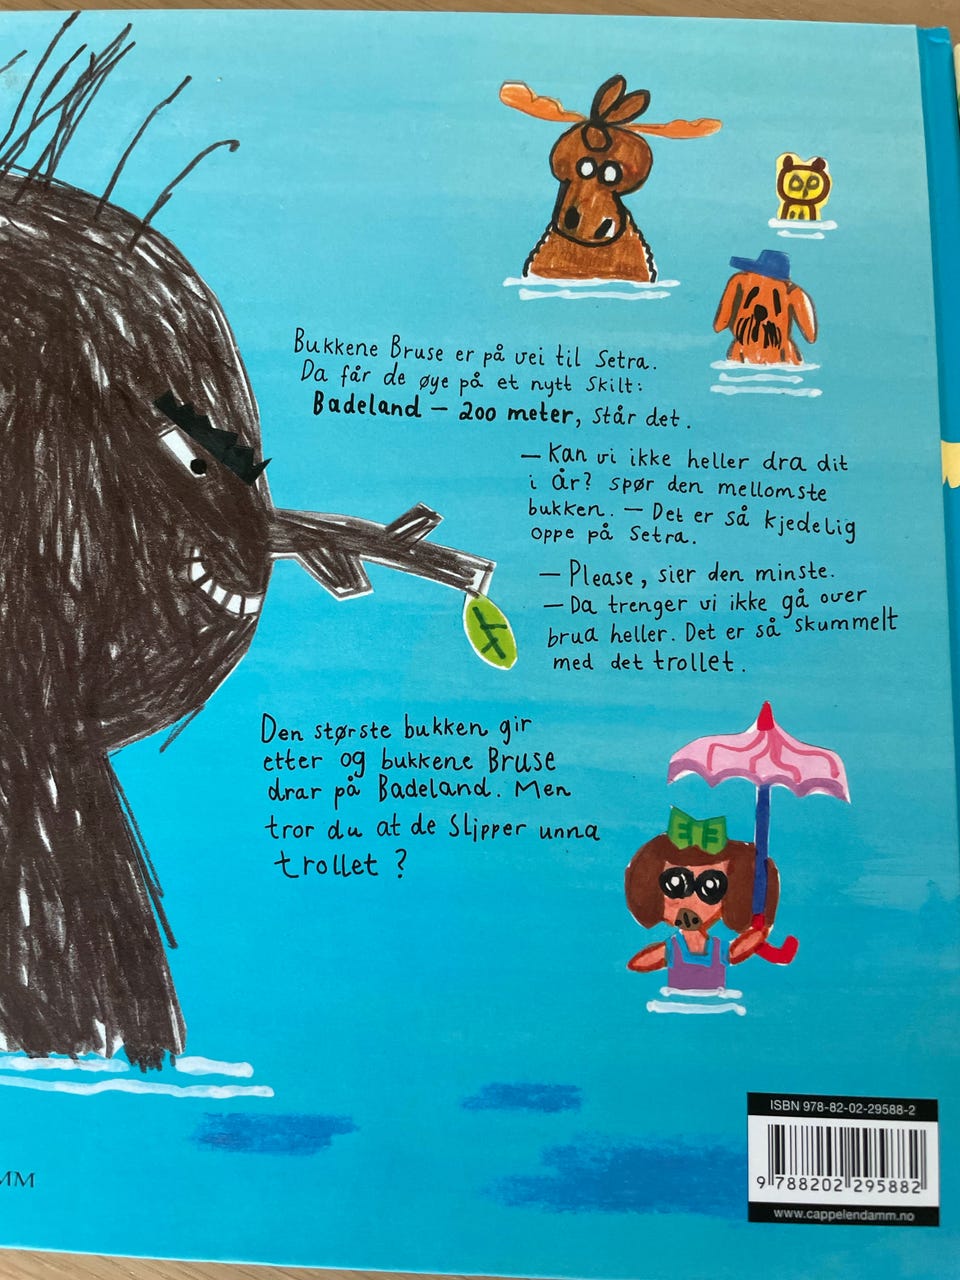 Bukkene Bruse er på vei til Setra.
Da får de øye på et nytt skilt:
Badeland – 200 meter, står det.
– Kan vi ikke heller dra dit
i år? spør den mellomste
bukken. – Det er så kjedelig
oppe på Setra.
– Please, sier den minste.
– Da trenger vi ikke gå over
brua heller. Det er så skummelt
med det trollet.
Den største bukken gir
etter og bukkene Bruse
drar på Badeland. Men
tror du at de slipper unna
trollet?
ISBN 978-82-02-29588-2
9 788202 295882
www.cappelendamm.no
MM